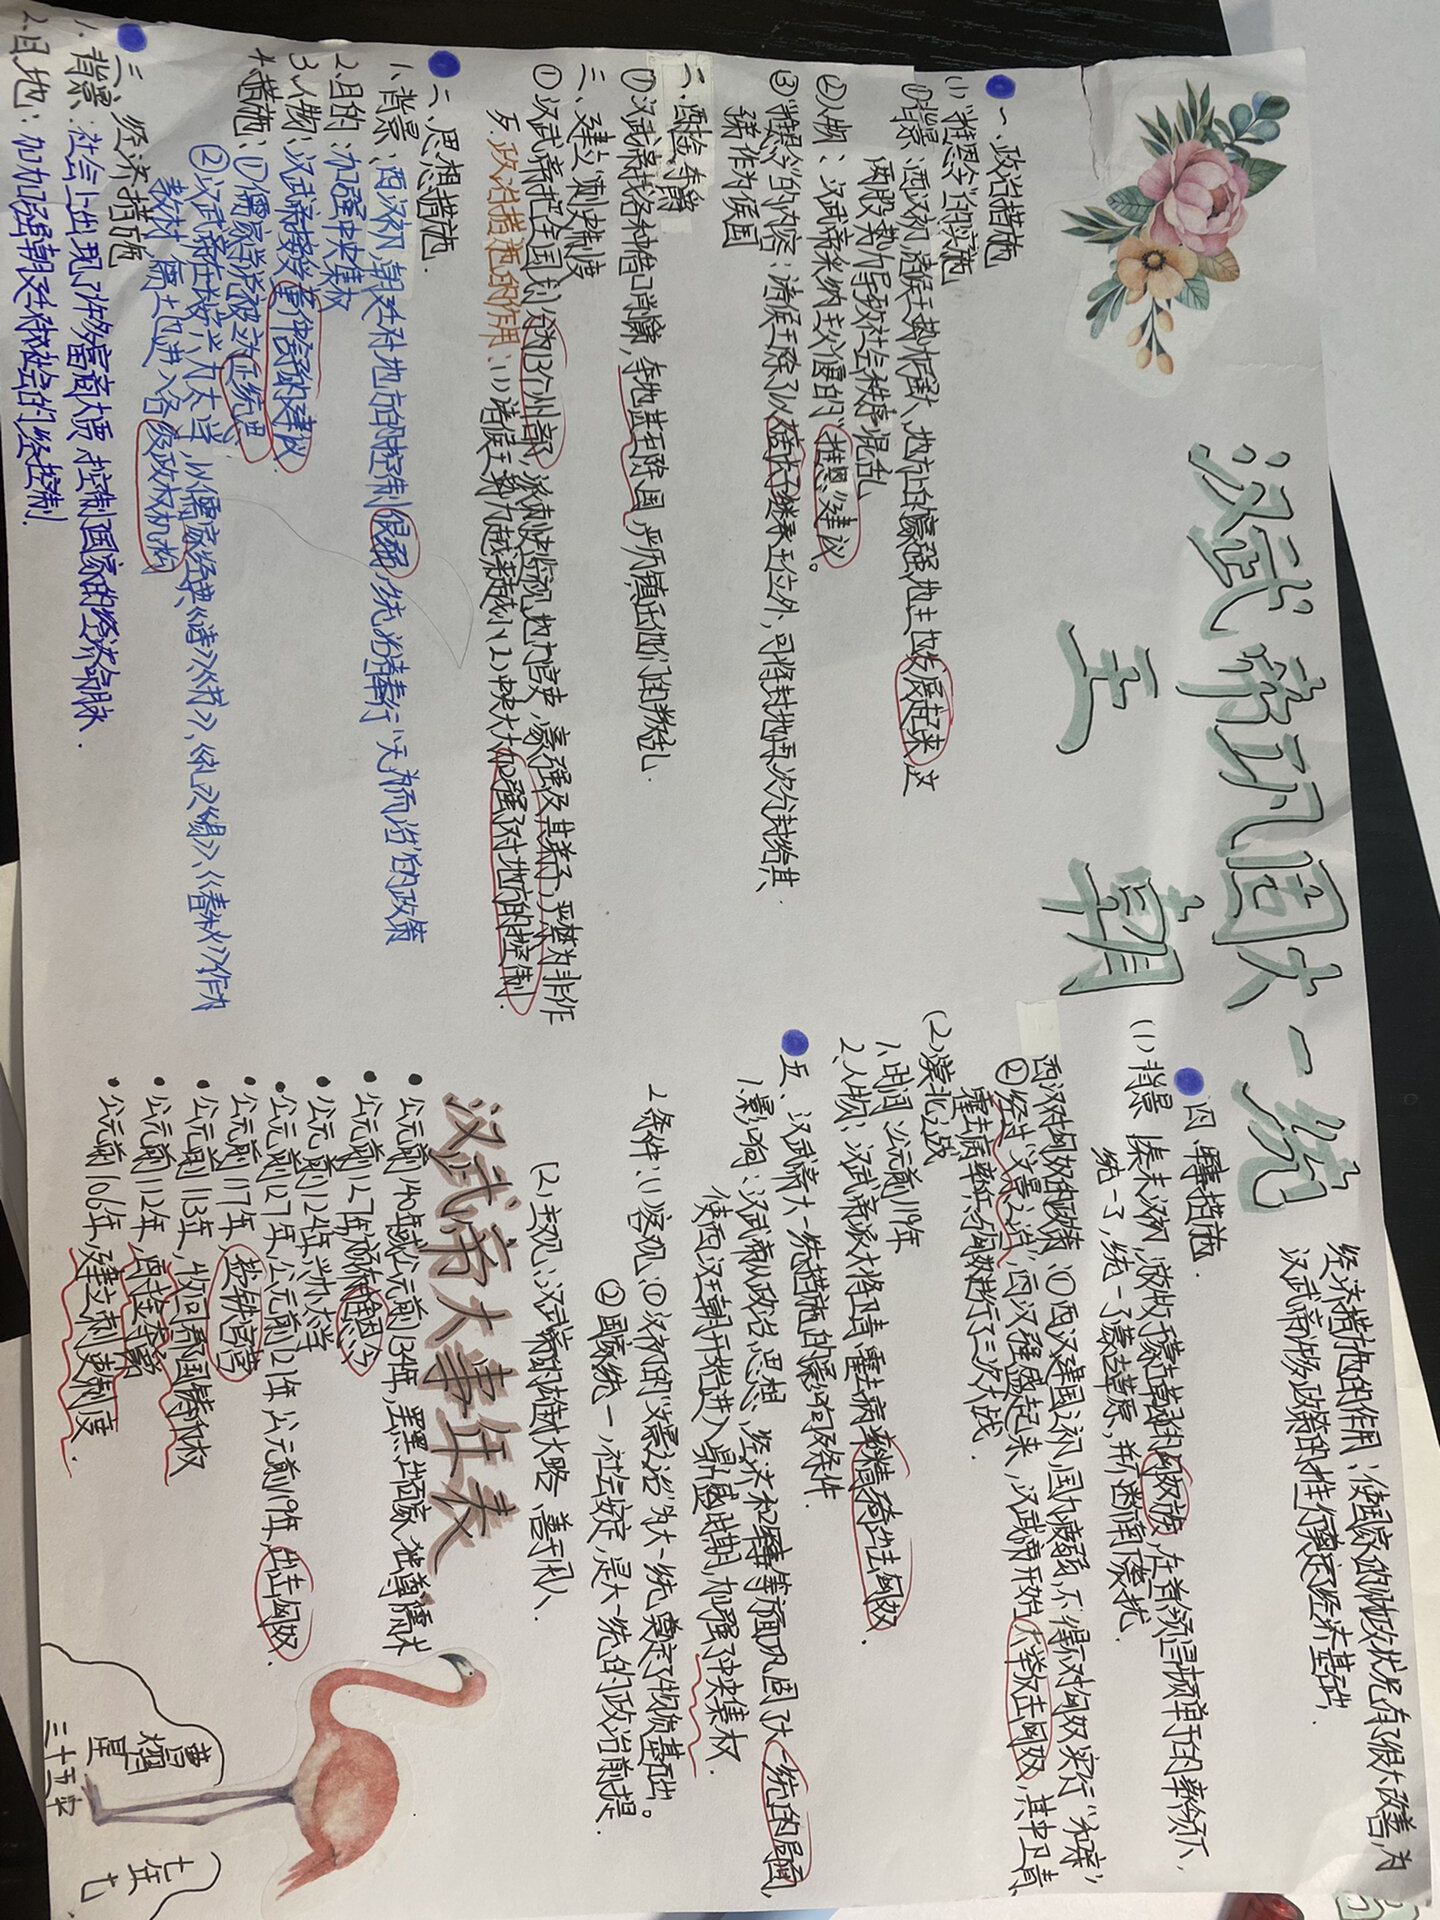 汉武帝巩固大一统
王朝
一、政治措施
(1)"推恩令"的实施
①背景：西汉初，诸侯王势力强大，地方上的豪强地主也发展起来，这
两股势力导致社会秩序混乱
②人物：汉武帝采纳主父偃的"推恩"建议。
③"推恩令"的内容：诸侯王除了以嫡长子继承王位外，可将封地再次分封给其
作为侯国
二、酎金夺爵
①汉武帝找各种借口削爵，夺地甚至除国，严厉镇压他们的叛乱.
三、建立刺史制度
①汉武帝把全国划分为13个州部，派刺史监视地方官吏，豪强及其弟子，严禁为非作
歹.政治措施的作用：(1)诸侯王势力越来越小(2)中央大大加强了对地方的控制.
二、思想措施.
1.背景：西汉初，朝廷对地方的控制很弱，统治奉行"无为而治"的政策
2.目的：加强中央集权
3.人物：汉武帝接受董仲舒的建议
4.措施：①儒家学说被立正统思
②汉武帝在长安兴办太学，以儒家经典《诗》《书》、《礼》《易》、《春秋》作为
教材，儒士也进入各级政权机构
三、经济措施
1.背景：社会上出现了许多富商大贾，控制国家的经济命脉.
2.目地：加强朝廷对社会的经控制.
经济措施的作用：使国家的财政状况有了很大改善，为
汉武帝许多政策的推行奠定经济基础.
四、军事措施.
(1)背景 秦末汉初，游牧于蒙古草原的匈奴族，在首领冒顿单于的率领下，
统一了，统一了蒙古草原，并不断南下袭扰.
西汉对匈奴的政策：①西汉建国之初，国力疲弱，不得不对匈奴实行"和亲"，
②经过"文景之治"，西汉强盛起来，汉武帝开始大举反击匈奴，其中卫青、
霍去病率兵与匈奴进行了三次大战.
(2)漠北之战
1.时间：公元前119年
2.人物：汉武帝派大将卫青、霍去病率精骑出击匈奴.
五、汉武帝大一统措施的影响及条件.
1.影响：汉武帝从政治、思想、经济和军事等方面巩固了大一统的局面，
使西汉王朝开始进入鼎盛时期，加强了中央集权.
2.条件：(1)客观：①汉初的"文景之治"为大一统奠定了物质基础。
②国家统一，社会安定，是大一统的政治前提.
(2)主观：汉武帝的雄才大略、善于用人.
汉武帝大事年表
• 公元前140年或公元前134年，罢黜百家，独尊儒术
• 公元前127年，颁布推恩令
• 公元前124年，兴办太学
• 公元前127年，公元前121年，公元前119年，出击匈奴.
• 公元前117年，盐铁官营
• 公元前113年，收回郡国铸币权
• 公元前112年，酎金夺爵
• 公元前106年，建立刺史制度.
曹熠星
三十五中
七年七